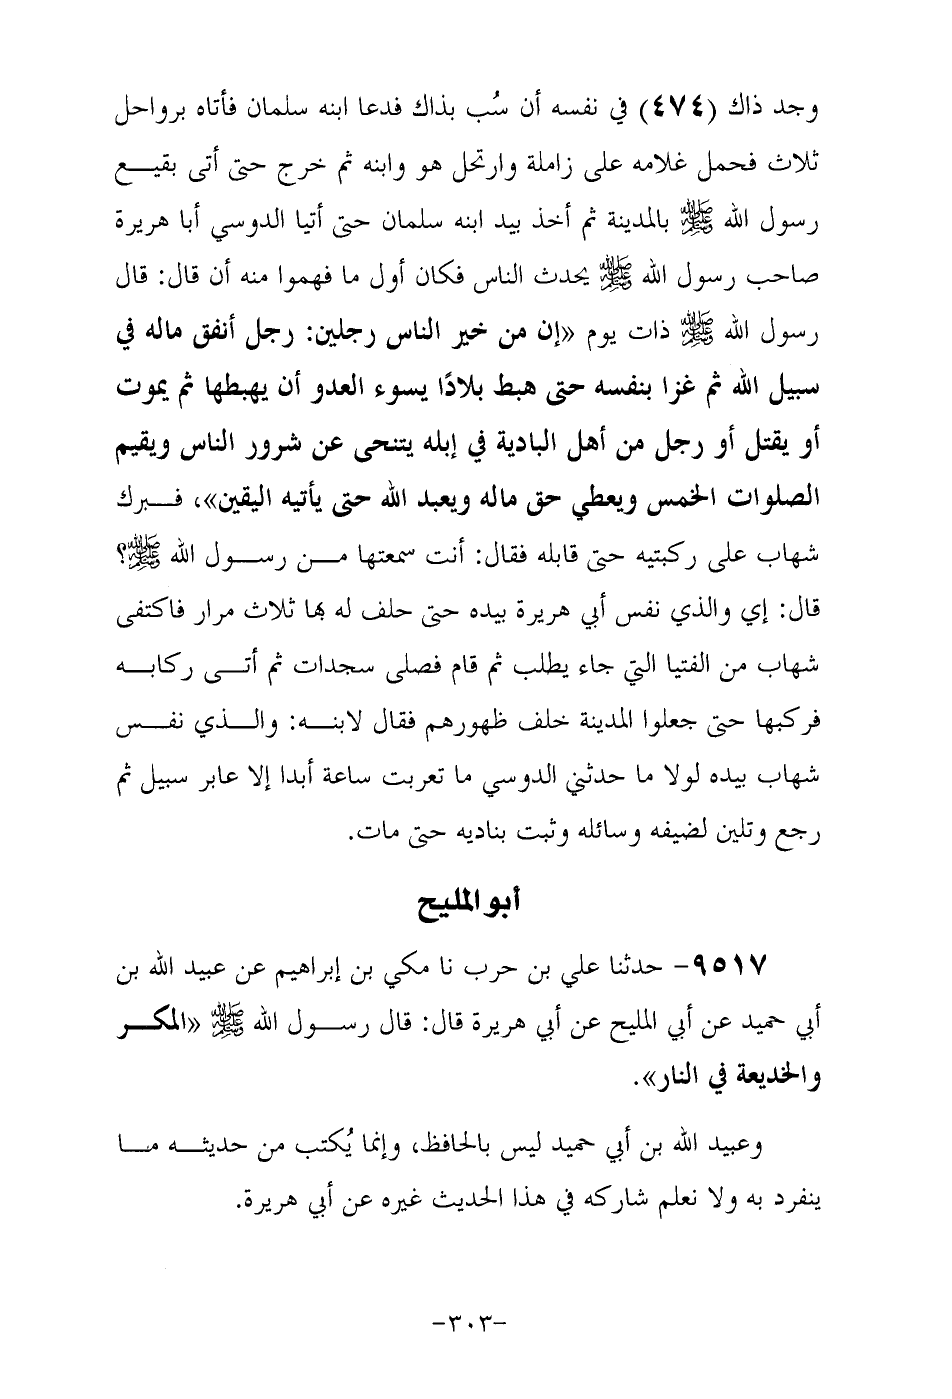 وجد ذاك (٤٧٤) في نفسه أن سُب بذاك فدعا ابنه سلمان فأتاه برواحل
ثلاث فحمل غلامه على زاملة وارتحل هو وابنه ثم خرج حتى أتى بقيـــع
رسول الله ﷺ بالمدينة ثم أخذ بيد ابنه سلمان حتى أتيا الدوسي أبا هريرة
صاحب رسول الله ﷺ يحدث الناس فكان أول ما فهموا منه أن قال: قال
رسول الله ﷺ ذات يوم «إن من خير الناس رجلين: رجل أنفق ماله في
سبيل الله ثم غزا بنفسه حتى هبط بلادًا يسوء العدو أن يهبطها ثم يموت
أو يقتل أو رجل من أهل البادية في إبله يتنحى عن شرور الناس ويقيم
الصلوات الخمس ويعطي حق ماله ويعبد الله حتى يأتيه اليقين»، فـــبرك
شهاب على ركبتيه حتى قابله فقال: أنت سمعتها مـــن رســـول الله ﷺ؟
قال: إي والذي نفس أبي هريرة بيده حتى حلف له بها ثلاث مرار فاكتفى
شهاب من الفتيا التي جاء يطلب ثم قام فصلى سجدات ثم أتـــى ركابـــه
فركبها حتى جعلوا المدينة خلف ظهورهم فقال لابنـــه: والـــذي نفـــس
شهاب بيده لولا ما حدثني الدوسي ما تعربت ساعة أبدا إلا عابر سبيل ثم
رجع وتلين لضيفه وسائله وثبت بناديه حتى مات.
أبو المليح
٩٥١٧- حدثنا علي بن حرب نا مكي بن إبراهيم عن عبيد الله بن
أبي حميد عن أبي المليح عن أبي هريرة قال: قال رســـول الله ﷺ «المكـــر
والخديعة في النار».
وعبيد الله بن أبي حميد ليس بالحافظ، وإنما يُكتب من حديثـــه مـــا
ينفرد به ولا نعلم شاركه في هذا الحديث غيره عن أبي هريرة.
-٣٠٣-